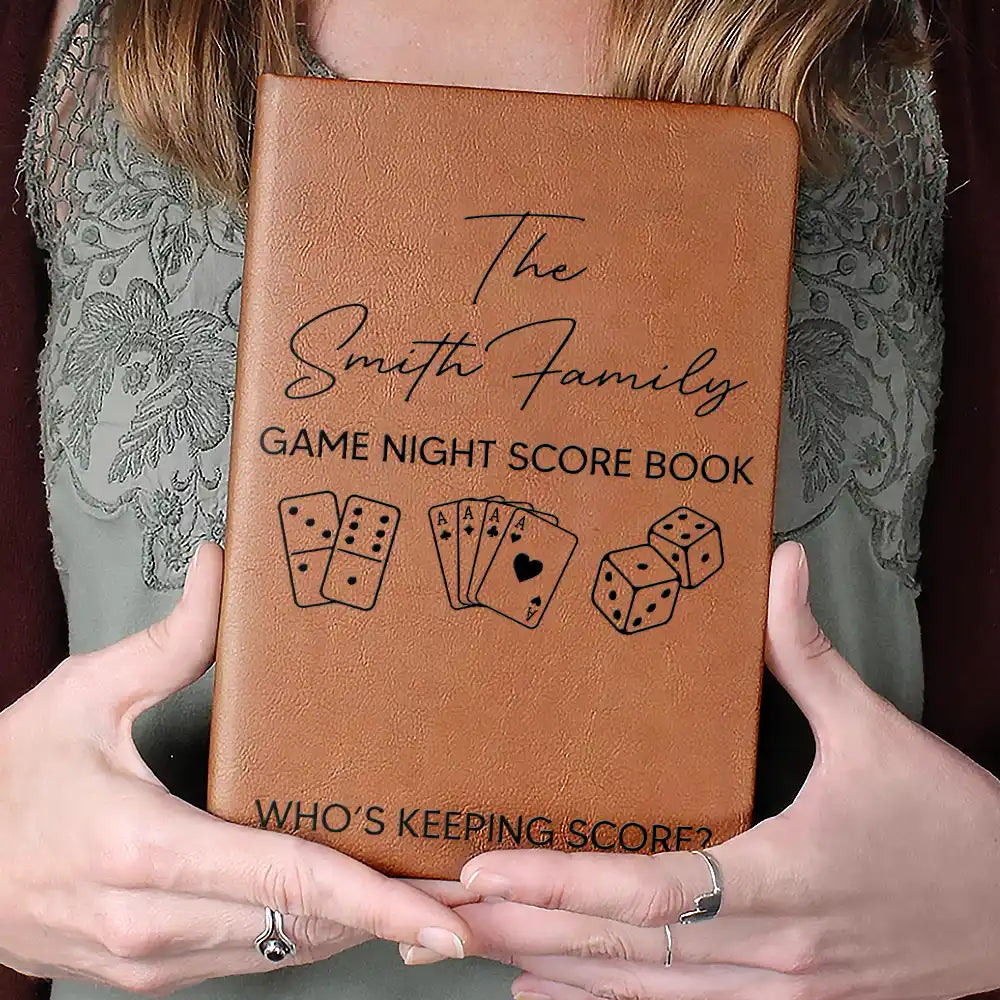 The
Smith Family
GAME NIGHT SCORE BOOK
A A A A
A
WHO'S KEEPING SCORE?